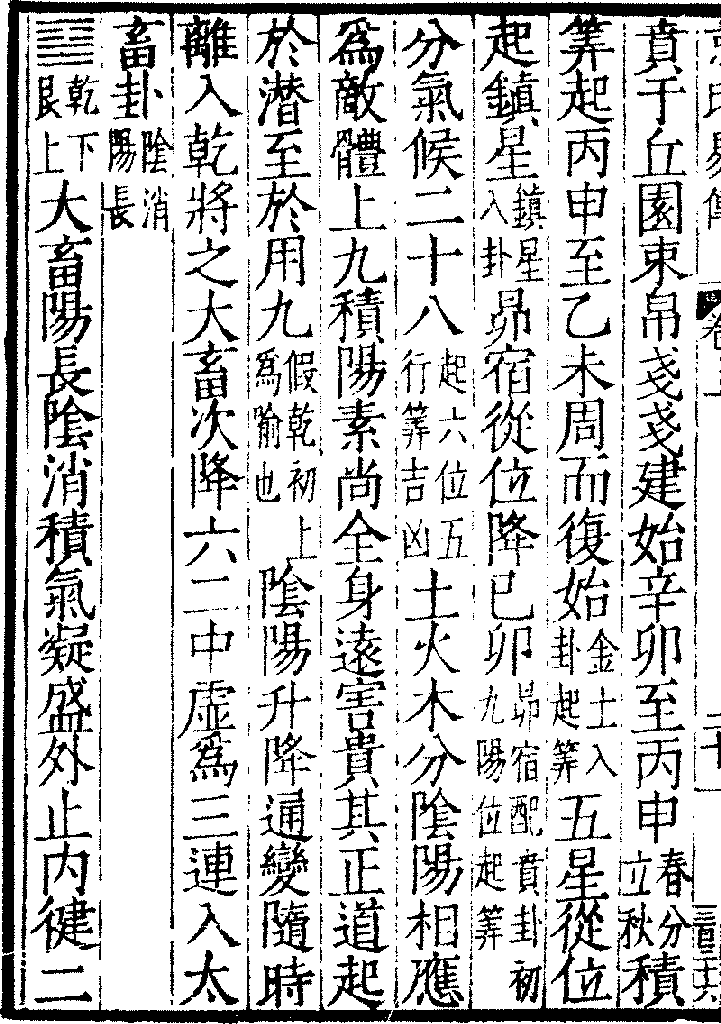 賁于丘園束帛戔戔建始辛卯至丙申春分立秋積
筭起丙申至乙未周而復始金土入卦起筭五星從位
起鎮星鎮星入卦昴宿從位降巳卯昴宿配賁卦初九陽位起筭
分氣候二十八起六位五行筭吉凶土火木分陰陽相應
爲敵體上九積陽素尚全身遠害貴其正道起
於潜至於用九假乾初上爲喻也陰陽升降通變隨時
離入乾將之大畜次降六二中虛爲三連入太
畜卦陰消陽長
䷙乾下艮上大畜陽長陰消積氣凝盛外止内徤二